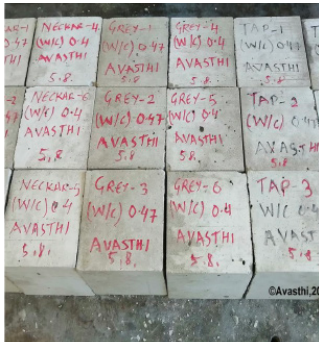 NECKAR-4
(W/C) 0.4
AVASTHI
5.8.
GREY-1
(W/C) 0.47
AVASTHI
5.8
GREY-4
(W/C) 0.4
AVASTHI
5.8.
TAP-1
(W/C) 0.47
AVASTHI
5.8.
NECKAR-6
(W/C) 0.4
AVASTHI
5.8
GREY-2
(W/C) 0.47
AVASTHI
5.8
GREY-5
(W/C) 0.4
AVASTHI
5.8.
TAP-2
(W/C) 0.4
AVASTHI
5.8
NECKAR-5
(W/C) 0.4
AVASTHI
5.8.
GREY-3
(W/C) 0.47
AVASTHI
5.8.
GREY-6
(W/C) 0.4
AVASTHI
5.8.
TAP-3
W/C 0.4
AVAST
5.8
©Avasthi,20